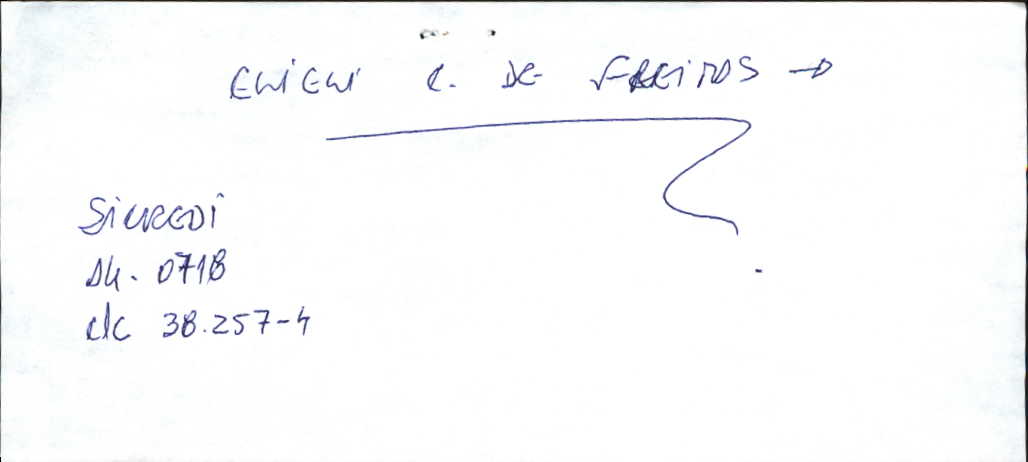 C. DE FREITAS →
SICREDI
AG. 0718
c/c 38.257-4